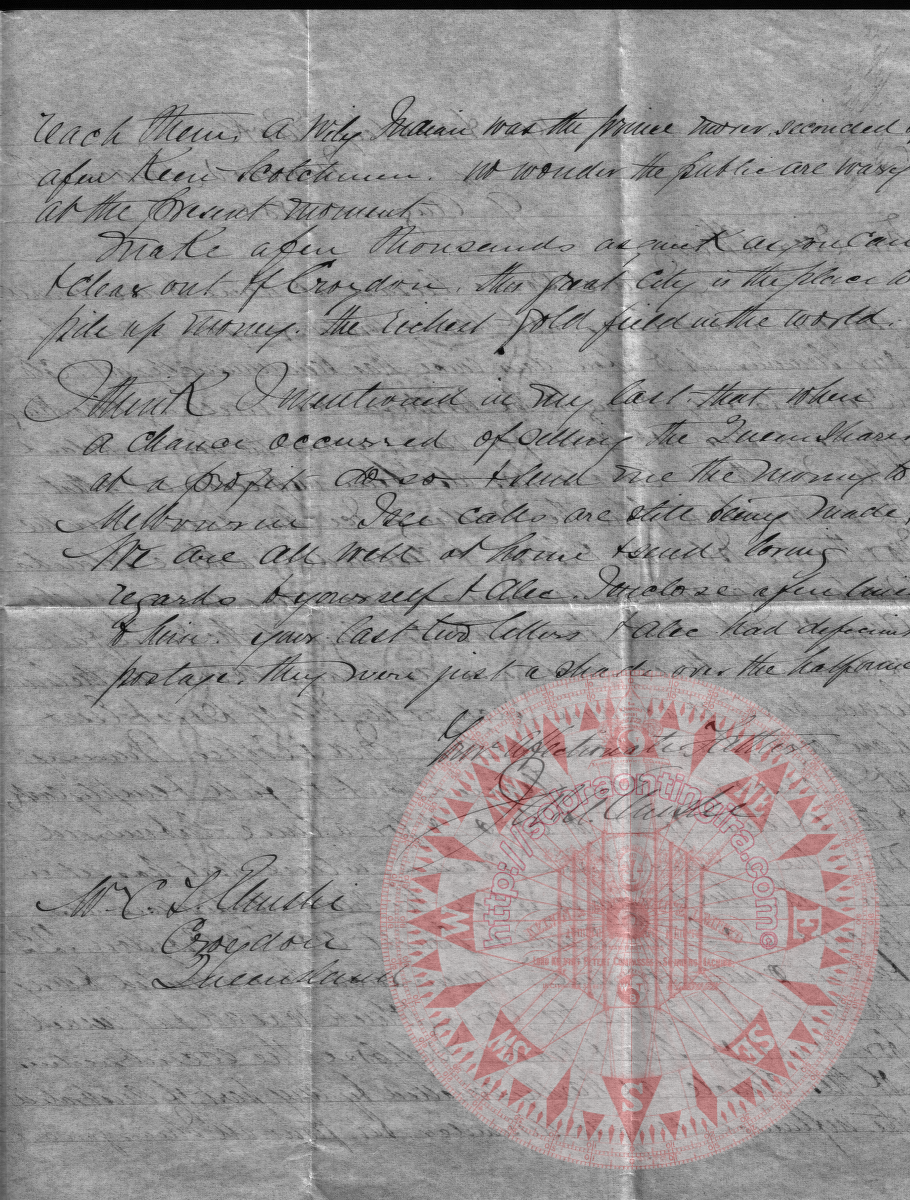 reach them. A Wily Indian was the prime mover seconded
a few Keen Scotchmen. no wonder the public are wary
at the present moment
make a few thousands as quick as you can
& clear out of Croydon. this great City is the place
pile up money. the richest gold field in the world.
I think I mentioned in my last that when
a chance occurred of selling the Queen Shares
at a profit do so & send me the money to
Melbourne I see calls are still being made,
We are all well at home & send loving
regards to yourself & Alec. I enclose a few lines
to him. your last two letters & Alec had deficient
postage. they were just a shade over the half ounce
Your affectionate Father
Mr C. L.
Croydon
Queensland
http://storeontinura.com
W
E
SW
SE
S